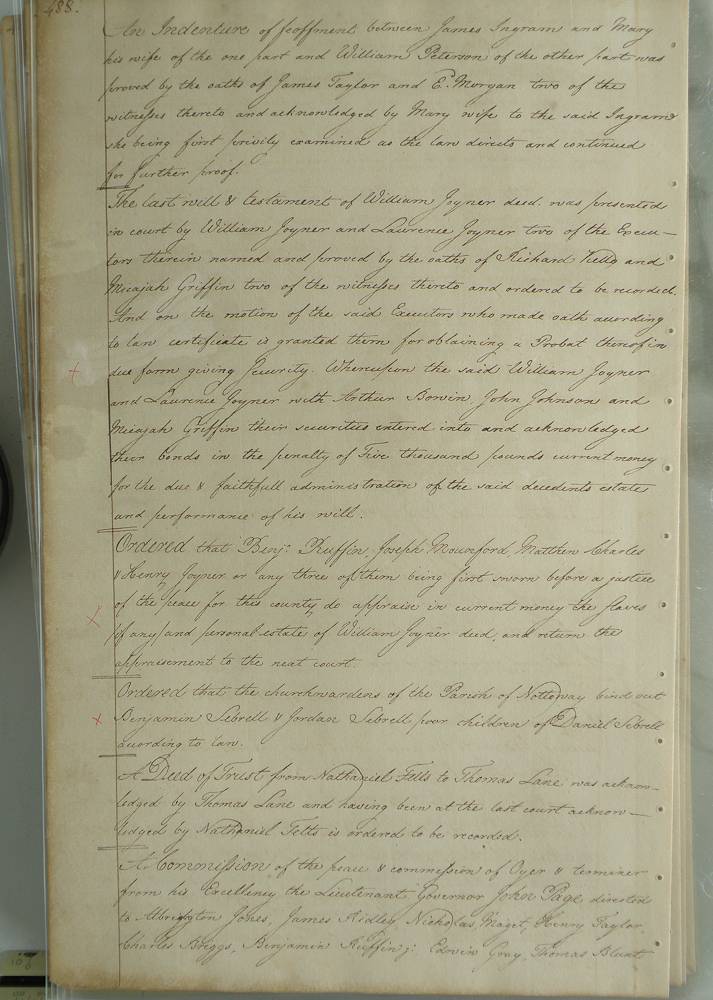 488.
An Indenture of feoffment between James Ingram and Mary
his wife of the one part and William Peterson of the other part was
proved by the oaths of James Taylor and E. Morgan two of the
witnesses thereto and acknowledged by Mary wife to the said Ingram
she being first privily examined as the law directs and continued
for further proof.
The last will & testament of William Joyner deed. was presented
in court by William Joyner and Laurence Joyner two of the Execu-
tors therein named and proved by the oaths of Richard Kello and
Micajah Griffin two of the witnesses thereto and ordered to be recorded.
And on the motion of the said Executors who made oath according
to law certificate is granted them for obtaining a Probat thereof in
due form giving security. Whereupon the said William Joyner
and Laurence Joyner with Arthur Bowin, John Johnson and
Micajah Griffin their securities entered into and acknowledged
their bonds in the penalty of Five thousand pounds current money
for the due & faithfull administration of the said decedents estate
and performance of his will.
Ordered that Benj: Ruffin, Joseph Mounford, Matthew Charles
& Henry Joyner or any three of them being first sworn before a justice
of the peace for this county do appraise in current money the slaves
if any and personal estate of William Joyner deed, and return the
appraisement to the next court.
Ordered that the churchwardens of the Parish of Nottoway bind out
Benjamin Sebrell & Jordan Sebrell poor children of Daniel Sebrell
according to law.
A Deed of Trust from Nathaniel Felts to Thomas Lane was acknow-
ledged by Thomas Lane and having been at the last court acknow-
ledged by Nathaniel Felts is ordered to be recorded.
A Commission of the peace & commission of Oyer & terminer
from his Excellency the Lieutenant Governor John Page directed
to Albrighton Jones, James Ridley, Nicholas Maget, Henry Taylor,
Charles Briggs, Benjamin Ruffin j: Edwin Gray, Thomas Blunt